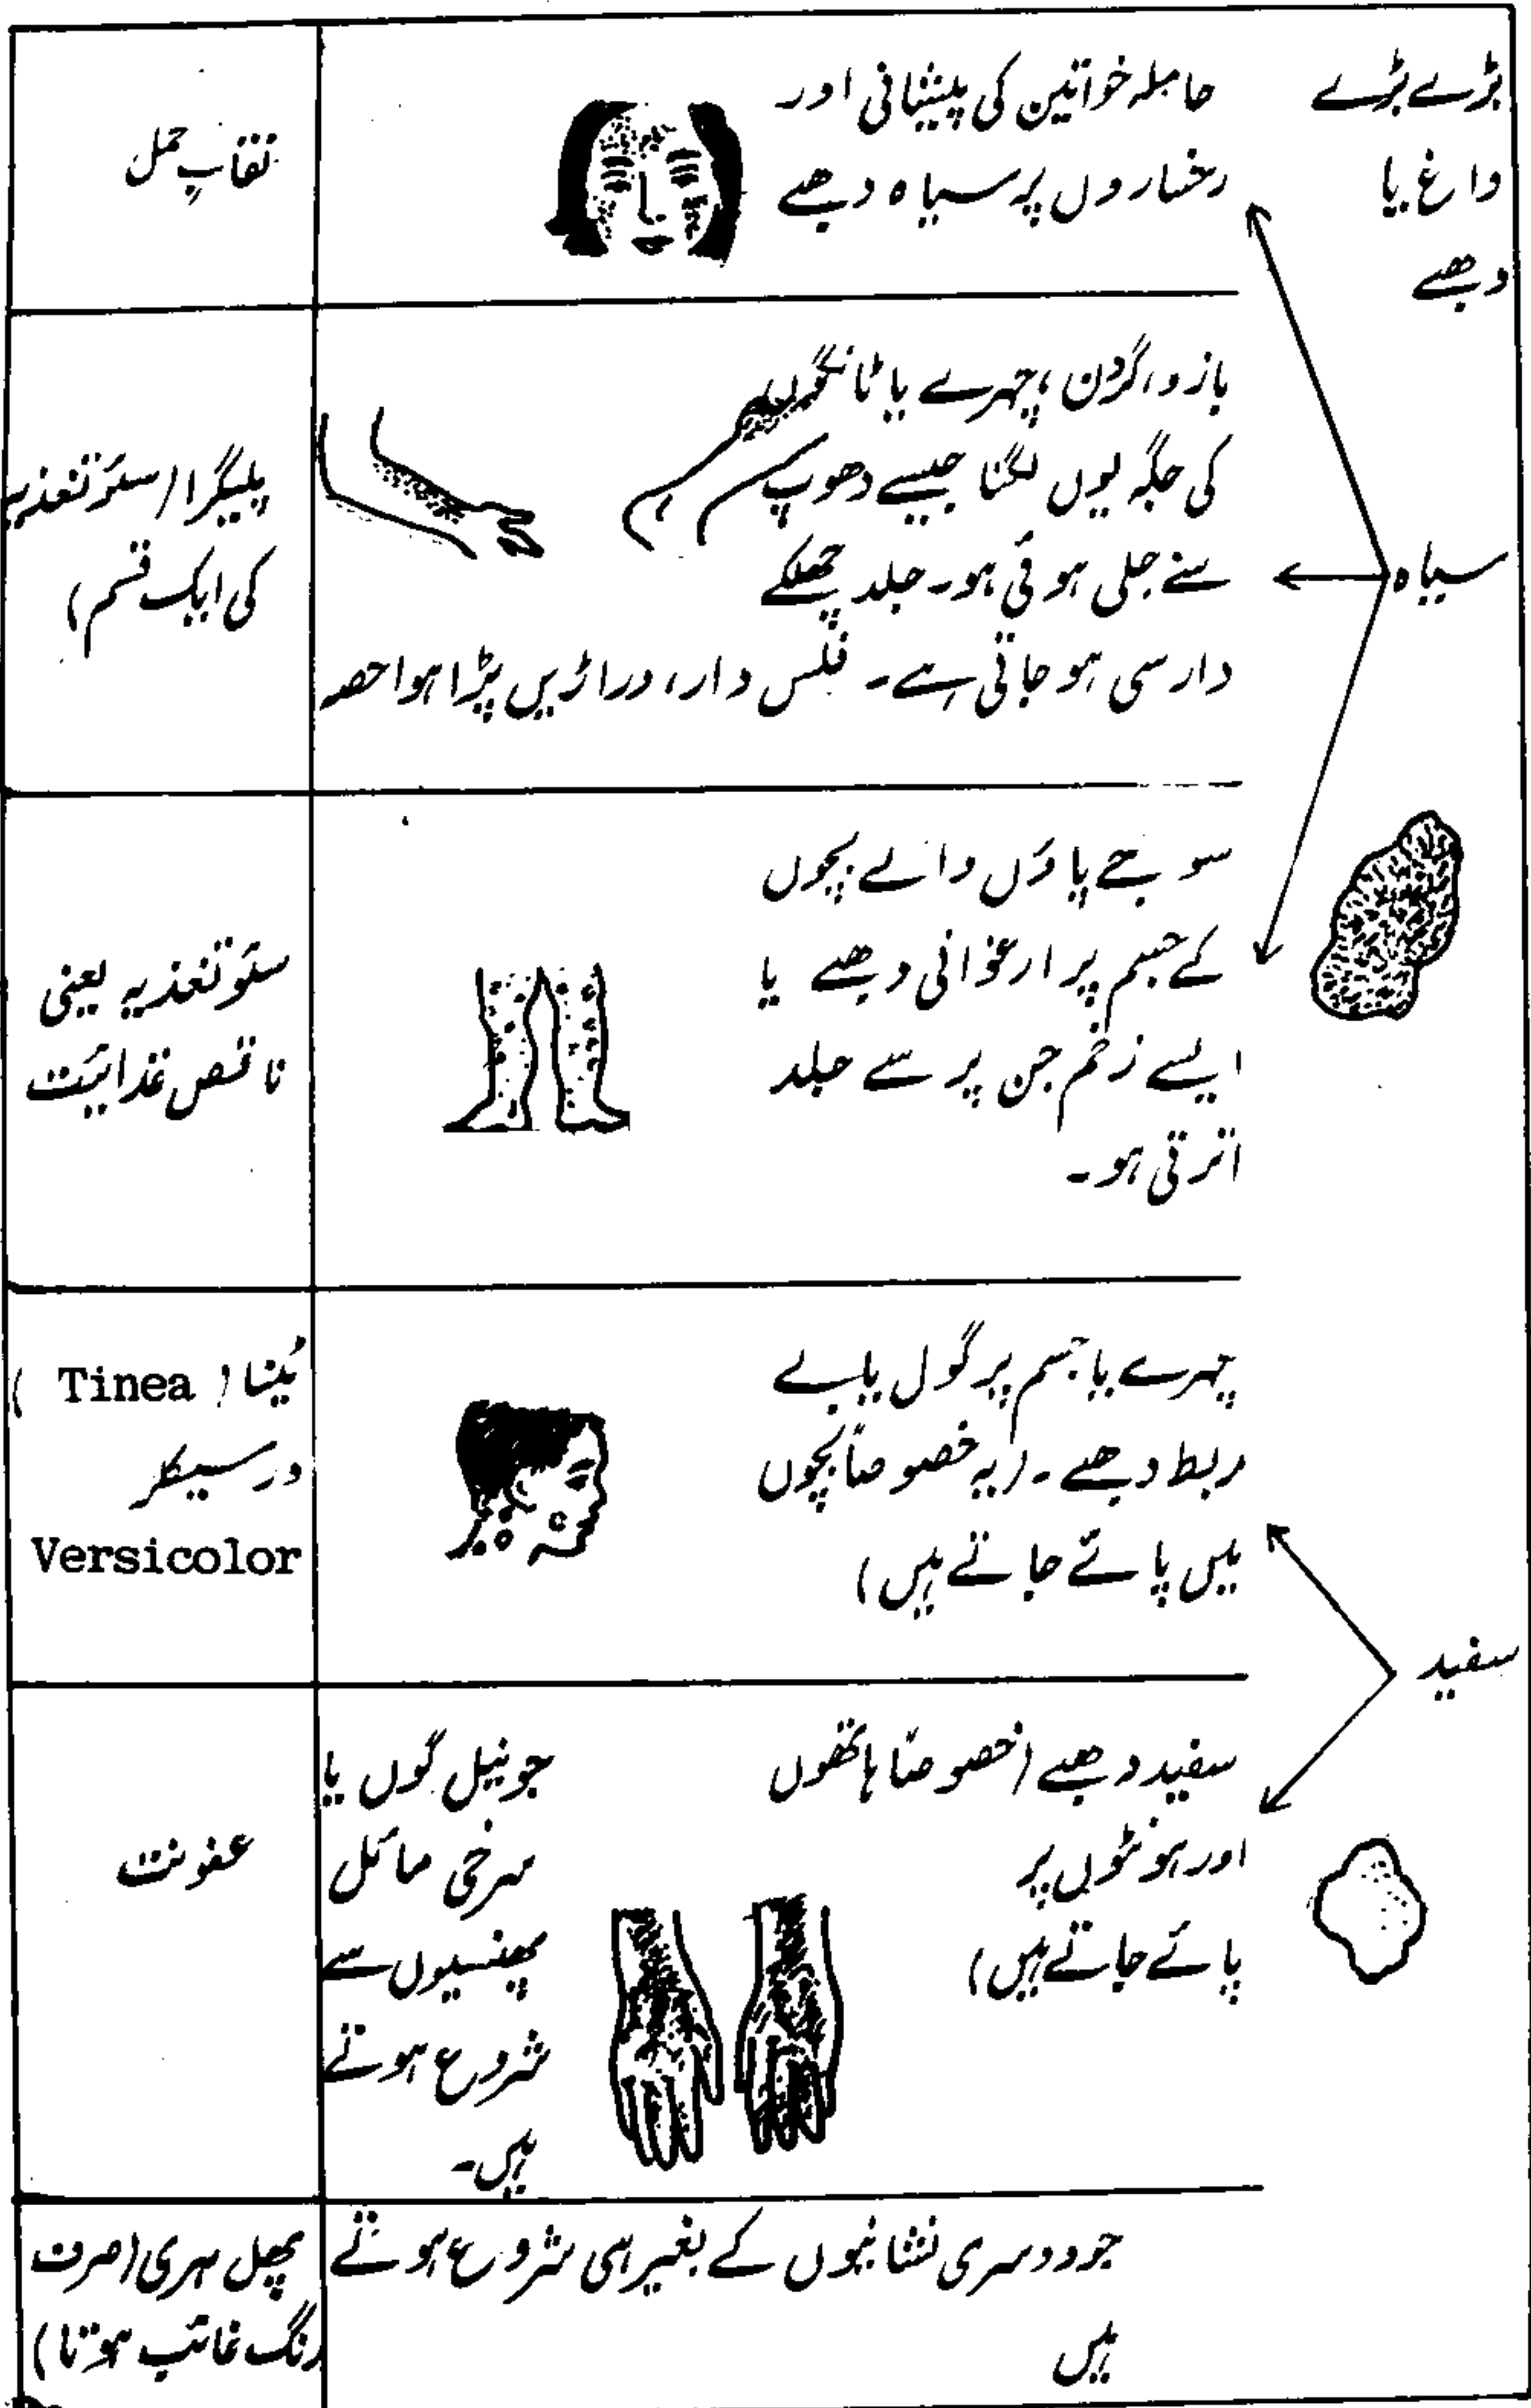 بڑے بڑے
داغ یا
دھبے
حاملہ خواتین کی پیشانی اور
رخساروں پر سیاہ دھبے
نقابِ حمل
سیاہ
بازو، گردن، چہرے یا ٹانگوں
کی جگہ یوں لگنا جیسے دھوپ
سے جلی ہوئی ہو۔ جلد چھلکے
دار سی ہو جاتی ہے۔ فلس دار، دراڑیں پڑا ہوا حصہ
پلیگرا (سوٗتغذیہ
کی ایک قسم)
سوجے پاؤں والے بچوں
کے جسم پر ارغوانی دھبے یا
ایسے زخم جن پر سے جلد
اترتی ہو۔
سوٗتغذیہ یعنی
ناقص غذائیت
سفید
چہرے یا جسم پر گول یا بے
ربط دھبے۔ (یہ خصوصاً بچوں
میں پائے جاتے ہیں)
ٹینا ( Tinea )
ورسیکلر
Versicolor
سفید دھبے (خصوصاً ہاتھوں
اور ہونٹوں پر
پائے جاتے ہیں)
جو نیل گوں یا
سرخی مائل
پھنسیوں سے
شروع ہوتے
ہیں۔
عفونت
جو دوسری نشانیوں کے بغیر ہی شروع ہوتے
ہیں
پھل بہری (صرف
رنگ غائب ہوتا)